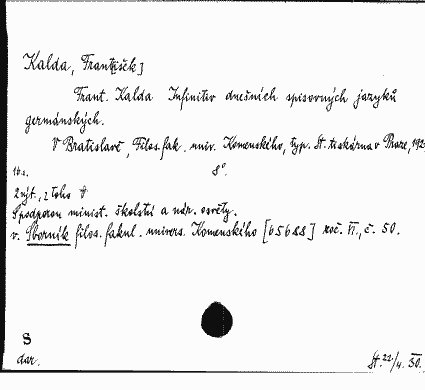 Kalda, Frant[išek]
Frant. Kalda Infinitiv dnešních spisovných jazyků
germánských.
V Bratislavě, Filos. fak. univ. Komenského, typ. St. tiskárna v Praze, 192
16 s. 8°.
2 výt., z toho
S podporou minist. školství a nár. osvěty.
v. Sborník filos. fakul. univers. Komenského [65688] roč. VI., č. 50.
S
dar. St. 22/4. 30.